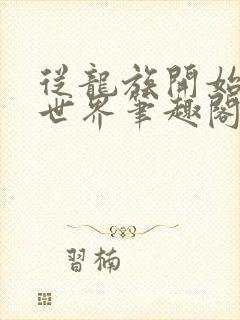 從龍族開始
世界筆趣閣
習楠